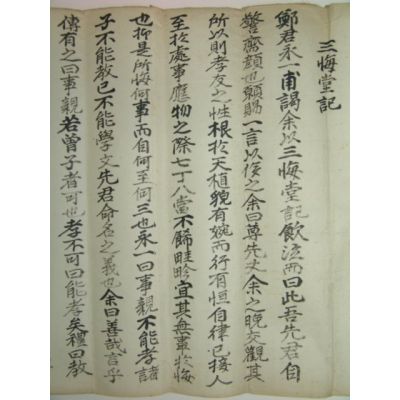 三悔堂記
鄭君永一甫謁余以三悔堂記飮泣而曰此吾先君自
警齋顔也願賜一言以後之余曰尊先丈余之晩交觀其
所以則孝友之性根於天植貌有婉而行有恒自律已接人
至於處事應物之際七丁八當不歸畦畛宜其無事於悔
也抑是所悔何事而自何至何三也永一曰事親不能孝諸
子不能敎已不能學文先君命名之義也余曰善哉言乎
傳有之曰事親若曾子者可也孝不可曰能孝矣禮曰敎